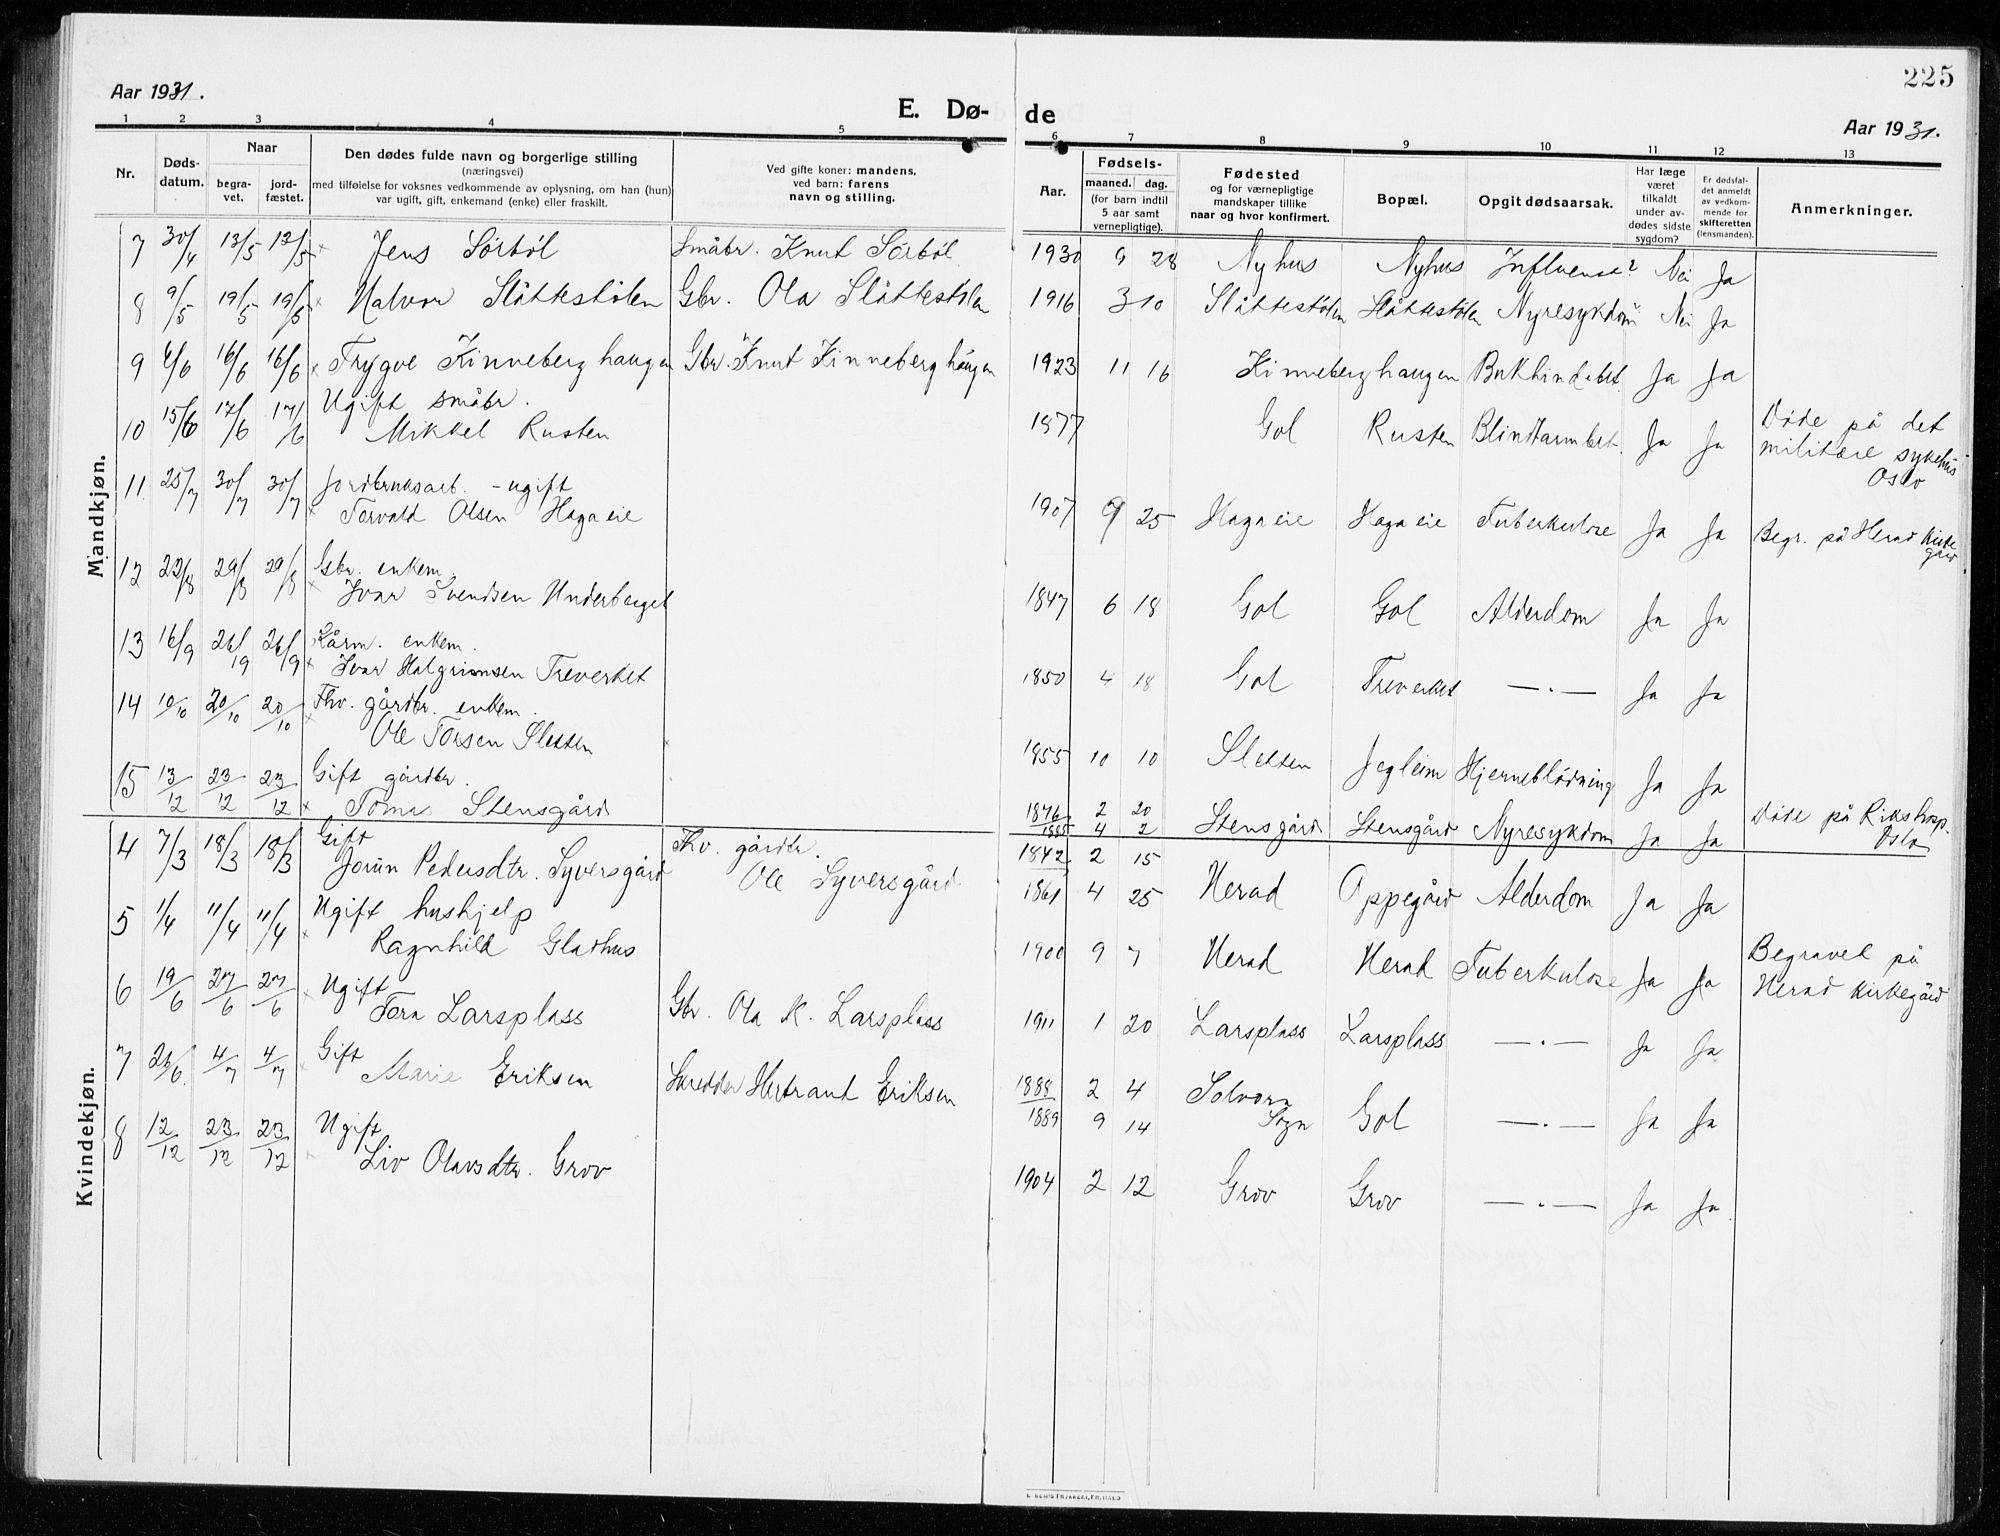 225
Aar 1931.
E. Dø-
de
Aar 1931.
1 2 3 4 5 6 7 8 9 10 11 12 13
Nr.
Døds-
datum.
Naar
begra-
vet.
jord-
fæstet.
Den dødes fulde navn og borgerlige stilling
(næringsvei)
med tilføielse for voksnes vedkommende av oplysning, om han (hun)
var ugift, gift, enkemand (enke) eller fraskilt.
Ved gifte koner: mandens,
ved barn: farens
navn og stilling.
Aar.
Fødsels-
maaned. dag.
(for barn indtil
5 aar samt
vernepligtige).
Fødested
og for værnepligtige
mandskaper tillike
naar og hvor konfirmert.
Bopæl.
Opgit dødsaarsak.
Har læge
været
tilkaldt
under av-
dødes sidste
sygdom?
Er dødsfal-
det anmeldt
av vedkom-
mende for
skifteretten
(lensmanden).
Anmerkninger.
Mandkjøn.
7 30/4 13/5 12/5 × Jens Sörböl Småbr. Knut Sörböl 1930 9 28 Nyhus Nyhus Influense? Nei Ja
8 9/5 19/5 19/5 × Halvor Slåttestölen Gbr. Ola Slåttestölen 1916 3 10 Slåttestölen Slåttestölen Nyresykdom Nei Ja
9 6/6 16/6 16/6 × Trygve Kinneberghaugen Gbr. Knut Kinneberghaugen 1923 11 16 Kinneberghaugen Bukhindebet. Ja Ja
10 15/6 17/6 17/6 Ugift småbr.
Mikkel Rusten 1877 Gol Rusten Blindtarmbet. Ja Ja Döde på det
militære sykehus
Oslo
11 25/7 30/7 30/7 Jordbruksarb. - ugift
× Torvald Olsen Hagaeie 1907 9 25 Hagaeie Hagaeie Tuberkulose Ja Ja Begr. på Herad kirke
gård
12 22/8 29/8 29/8 Gbr. enkem.
× Ivar Svendsen Underberget 1847 6 18 Gol Gol Alderdom Ja Ja
13 16/9 26/9 26/9 Kårm. enkem.
× Ivar Halgrimsen Treverket 1850 4 18 Gol Treverket — . — Ja Ja
14 10/10 20/10 20/10 Fhv. gårdbr. enkem.
× Ole Torsen Sletten 1855 10 10 Sletten Jegleim Hjerneblödning Ja Ja
15 13/12 23/12 23/12 Gift gårdbr.
× Tomas Stensgård 1876 2 20 Stensgård Stensgård Nyresykdom Ja Ja Döde på Rikshosp.
1885 4 2 Oslo
Kvindekjøn.
4 7/3 18/3 18/3 Gift Fhv. gårdbr. 1842 2 15
Jorun Pedersdtr. Syversgård Ole Syversgård 1861 4 25 Herad Oppegård Alderdom Ja Ja
5 1/4 11/4 11/4 Ugift hushjelp
× Ragnhild Gladhus 1900 9 7 Herad Herad Tuberkulose Ja Ja Begravet på
Herad kirkegård
6 19/6 27/6 27/6 Ugift
Tora Larsplass Gbr. Ola K. Larsplass 1911 1 20 Larsplass Larsplass — . — Ja Ja
7 26/6 4/7 4/7 Gift
Marie Eriksen Skredder Eriksen 1888 2 4 Solvorn
1889 9 14 Sogn Gol — . — Ja Ja
8 12/12 23/12 23/12 Ugift
Liv Olavsdtr. Grov 1904 2 12 Grov Grov — . — Ja Ja